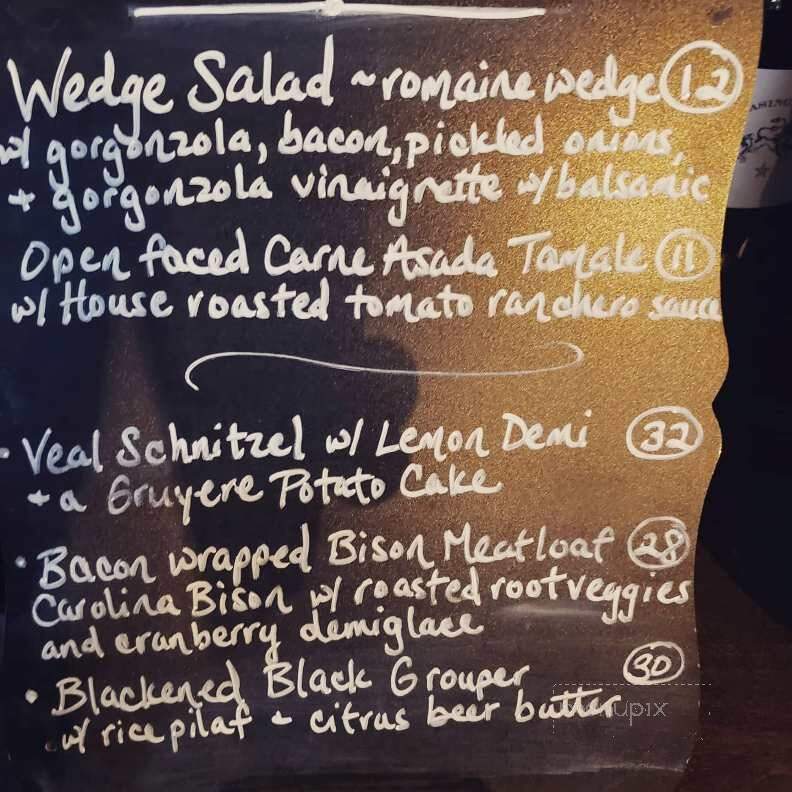 Wedge Salad ~ romaine wedge 12
w/ gorgonzola, bacon, pickled onions,
+ gorgonzola vinaigrette w/ balsamic
Open faced Carne Asada Tamale 11
w/ House roasted tomato ranchero sauce
• Veal Schnitzel w/ Lemon Demi 32
+ a Gruyere Potato Cake
• Bacon wrapped Bison Meatloaf 28
Carolina Bison w/ roasted root veggies
and cranberry demiglace
• Blackened Black Grouper 30
w/ rice pilaf + citrus beer butter